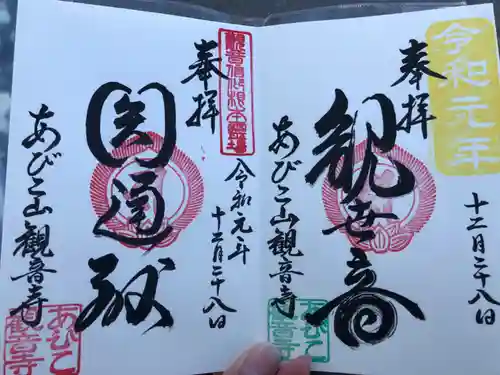 令和元年
奉拝
観世音
十二月二十八日
あびこ山観音寺
あびこ
観音寺
奉拝
円通殿
令和元年
十二月二十八日
あびこ山観音寺
あびこ
観音寺